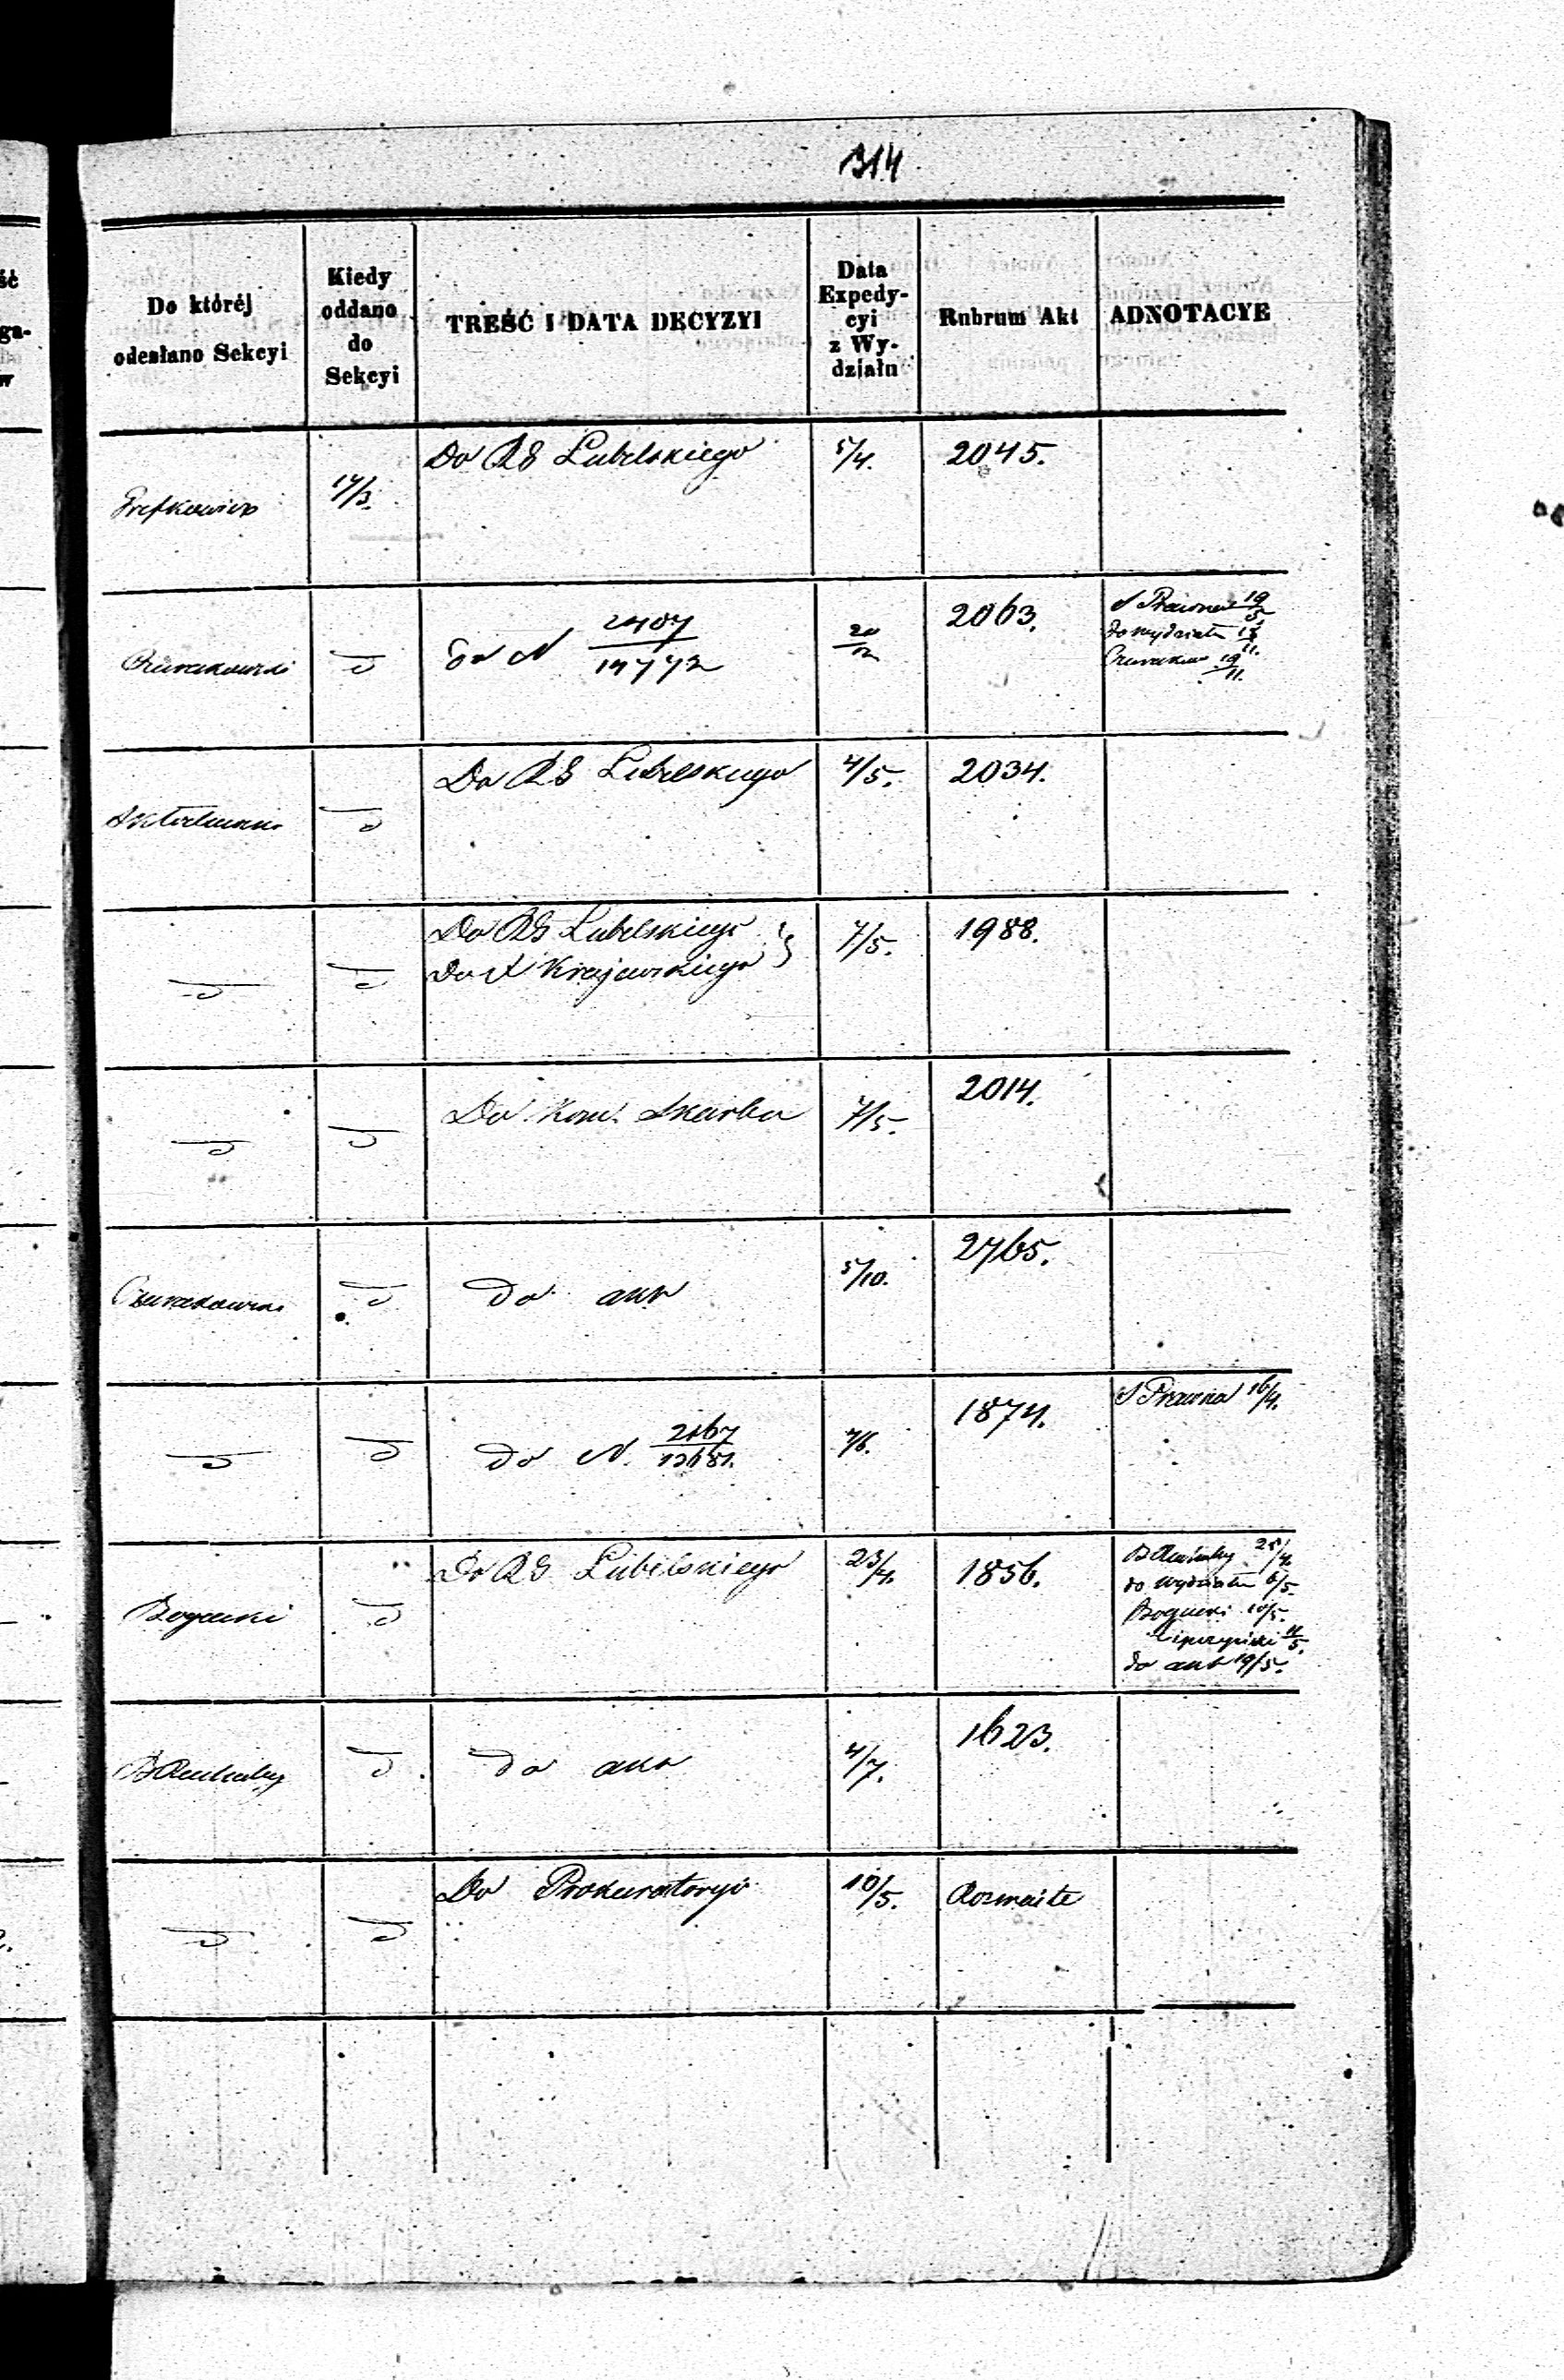 314
Do któréj odesłano Sekcyi
Kiedy oddano do Sekcyi
TREŚĆ I DATA DECYZYI
Data Expedycyi z Wydziału
Rubrum Akt
ADNOTACYE
17/3.
Do RG Lubelskiego
5/4.
2045.
do N 2407/19772
20/12
2063.
S Prawna 19/5.
do wydziału 18/11.
19/11.
Do RG Lubelskiego
4/5.
2034.
Do RG Lubelskiego
Do X Krajewskiego
7/5.
1988.
Do Kom. Skarbu
7/5.
2014.
do akt
5/10.
2765.
do N. 2167/12681.
7/6.
1874.
S Prawna 16/4.
Bogucki
Do RG Lubelskiego
23/4.
1856.
25/4.
do wydziału 6/5.
Bogucki 10/5.
11/5.
do akt 19/5.
do akt
4/7.
1623.
Do Prokuratoryi
10/5.
Rozmaite